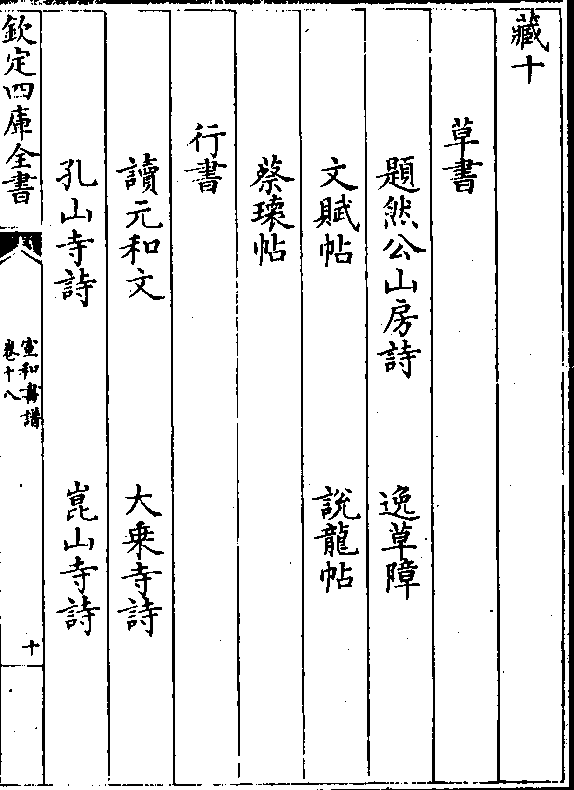 藏十
草書
題然公山房詩　逸草障
文賦帖　說龍帖
蔡瓌帖
行書
讀元和文　大乗寺詩
孔山寺詩　崑山寺詩
欽定四庫全書
宣和書譜
卷十八
十